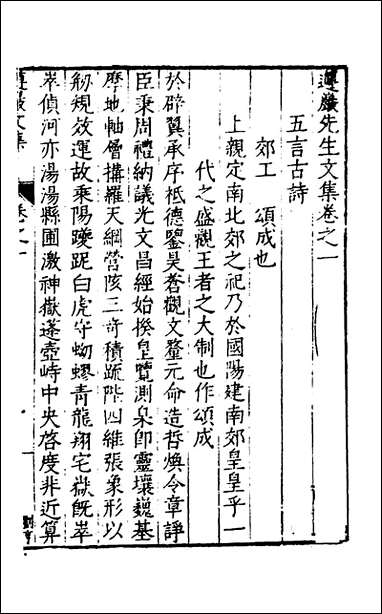 遵巖先生文集卷之一
五言古詩
郊工頌成也
上親定南北郊之祀乃於國陽建南郊皇皇乎一
代之盛觀王者之大制也作頌成
於辟翼承序祗德鑒昊蒼觀文釐元命造哲煥令章諍
臣秉周禮納議光文昌經始揆皇覽測臬卽靈壤巍基
摩地軸層搆羅天綱營陔三奇積疏陛四維張象形以
剏規效運故乘陽躨跜白虎守蚴蟉青龍翔宅嶽旣崒
崒偵河亦湯湯縣圃激神嶽蓬壺峙中央啓度非近算
遵巖文集
卷之一
一